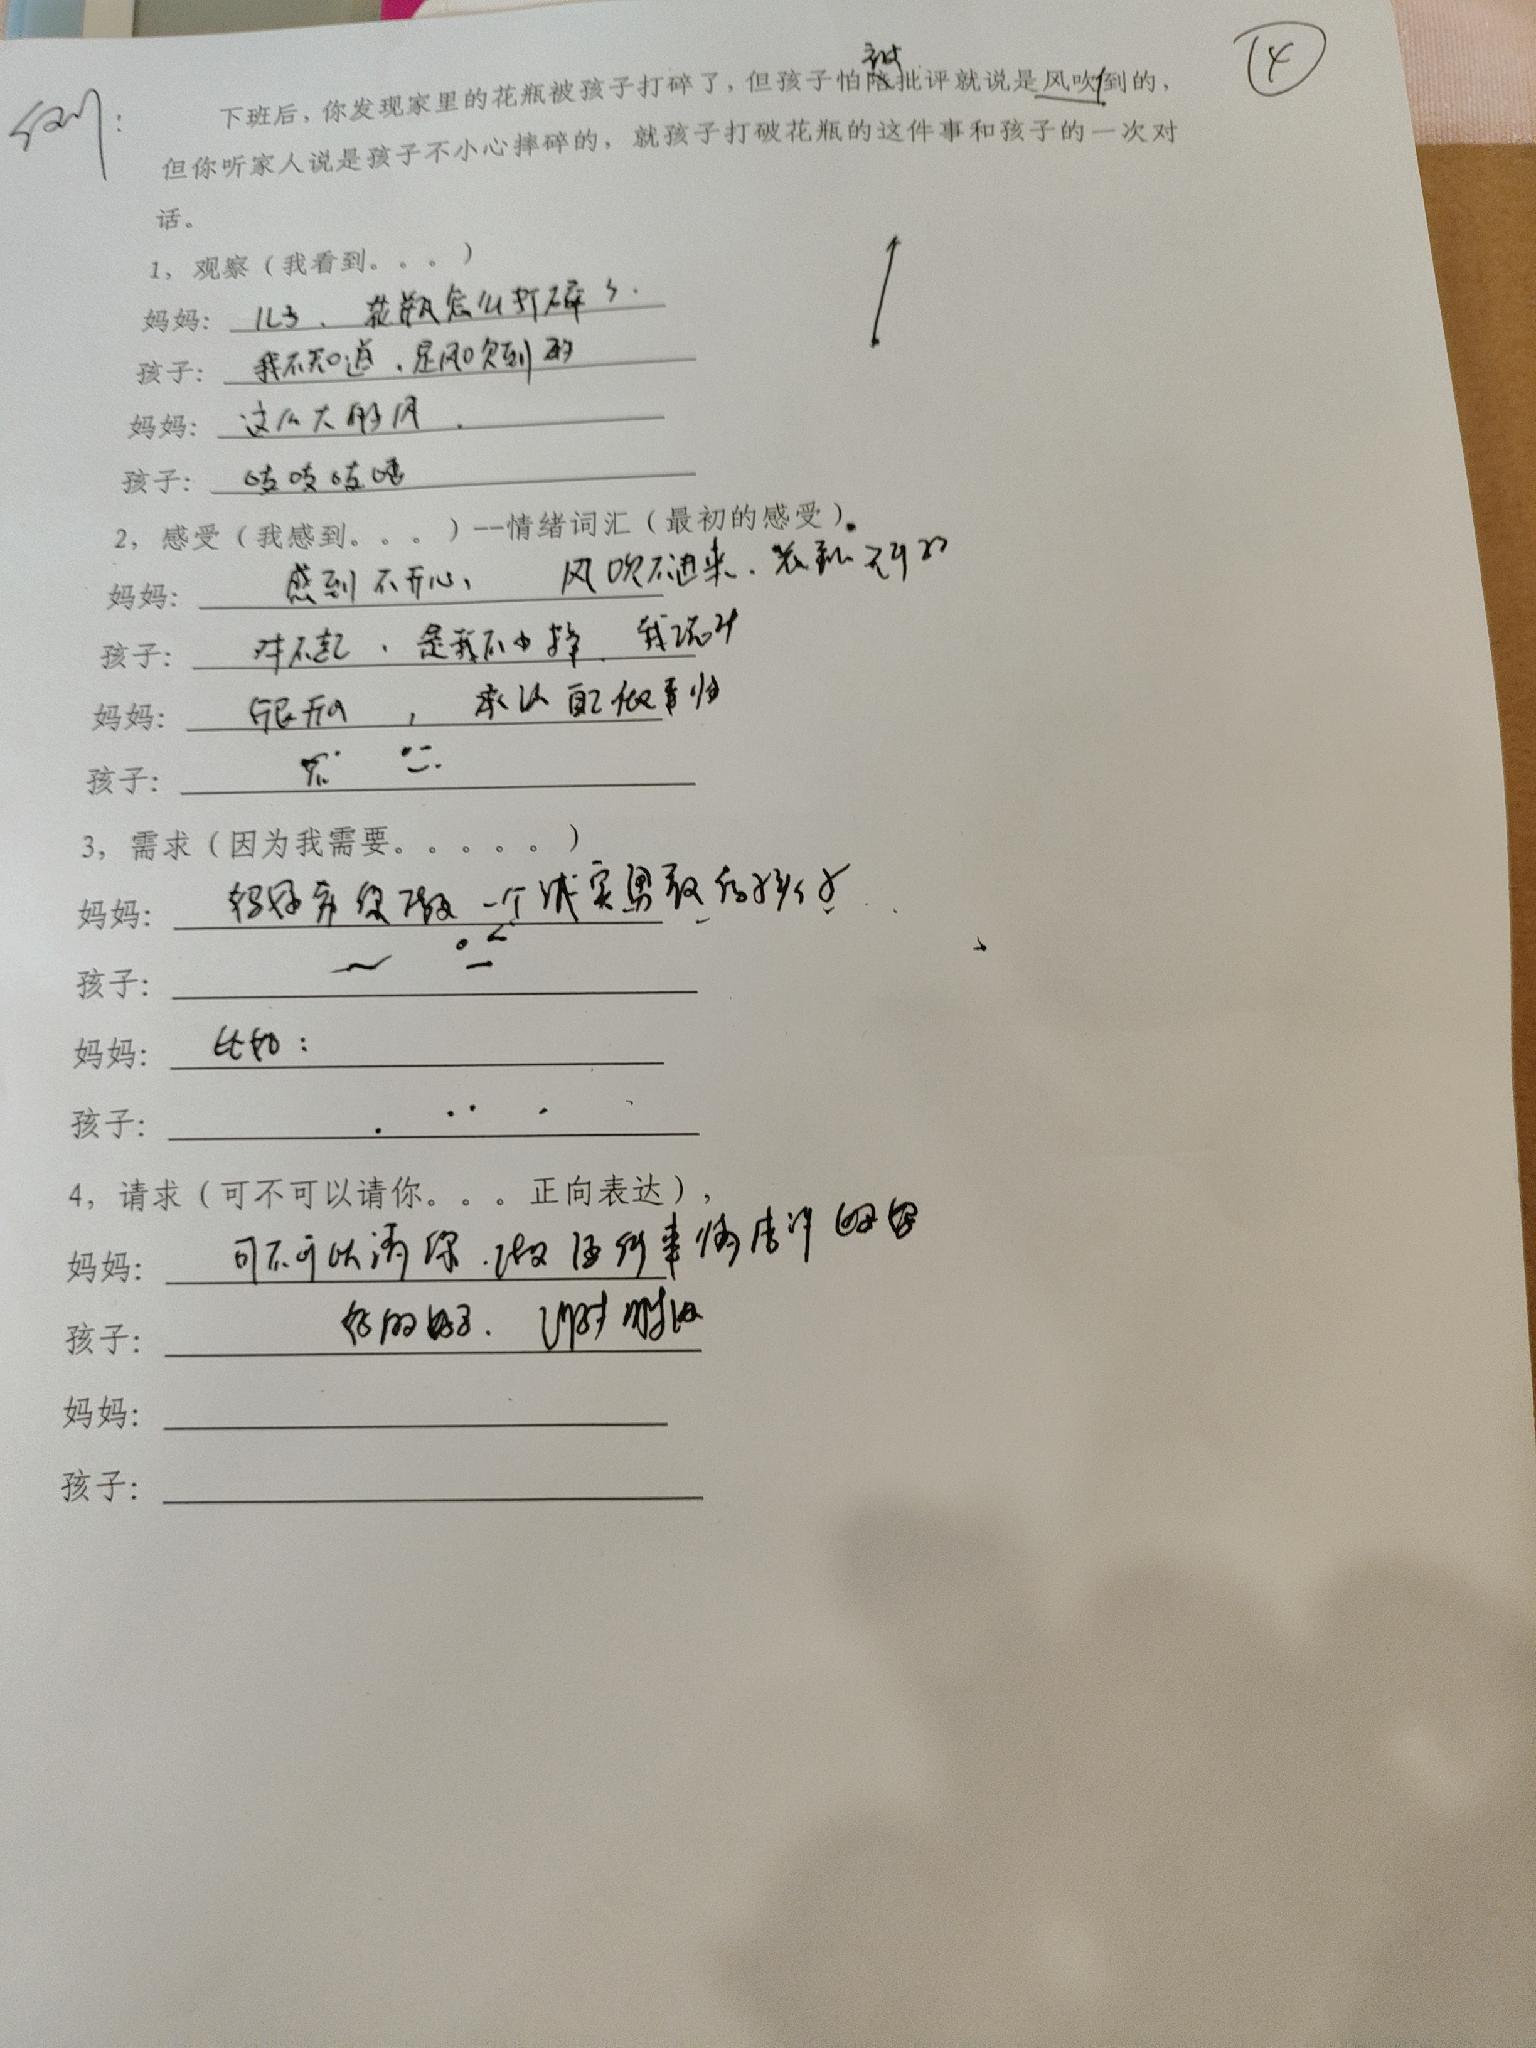 ④
案例:
下班后，你发现家里的花瓶被孩子打碎了，但孩子怕被批评就说是风吹到的，
但你听家人说是孩子不小心摔碎的，就孩子打破花瓶的这件事和孩子的一次对
话。
1，观察（我看到。。。）
妈妈: 儿子、花瓶怎么打碎了.
孩子: 我不知道.是风吹到的
妈妈: 这么大的风.
孩子: 吱吱吱唔
2，感受（我感到。。。）--情绪词汇（最初的感受）.
妈妈: 感到不开心, 风吹不进来.
孩子: 对不起、是我不小 我
妈妈: 很开心, 承认自己做事
孩子:
3，需求（因为我需要。。。。。）
妈妈: 妈妈希望你做一个诚实勇敢的孩子
孩子:
妈妈: 比如:
孩子:
4，请求（可不可以请你。。。正向表达），
妈妈: 可不可以请你.做 事情告诉妈妈
孩子: 好的妈妈. 谢谢
妈妈:
孩子: